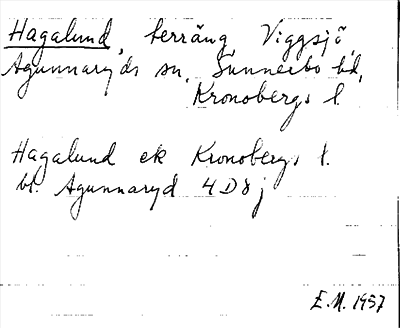 Hagalund, terräng, Viggsjö,
Agunnaryds sn, Sunnerbo hd,
Kronobergs l.
Hagalund ek Kronobergs l.
bl. Agunnaryd 4D8j
E.M. 1957